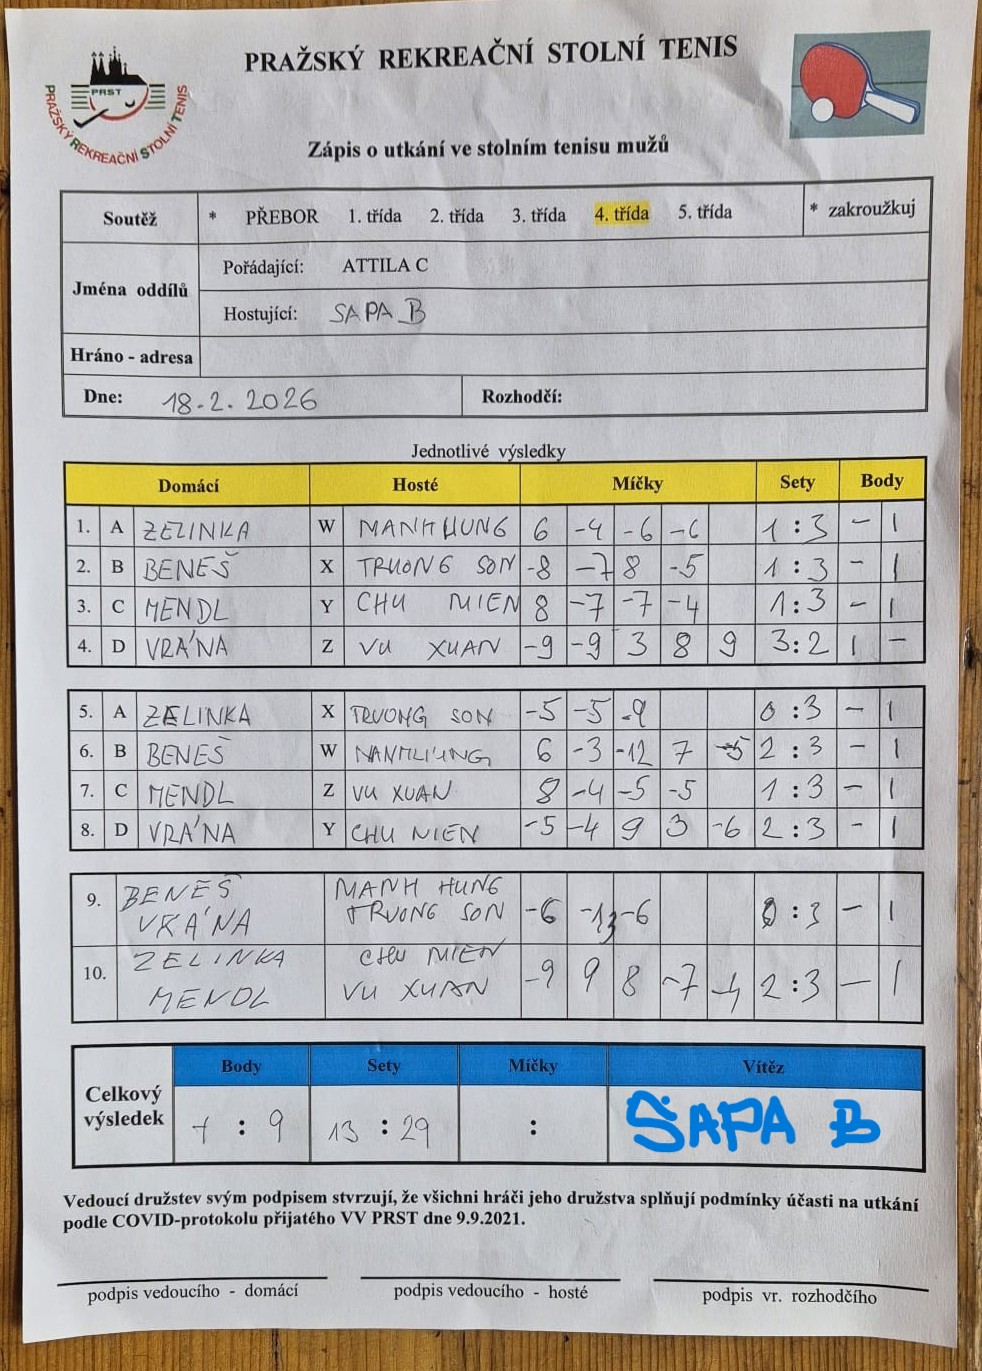 PRAŽSKÝ REKREAČNÍ STOLNÍ TENIS
PRST
PRAŽSKÝ REKREAČNÍ STOLNÍ TENIS
Zápis o utkání ve stolním tenisu mužů
Soutěž * PŘEBOR 1. třída 2. třída 3. třída 4. třída 5. třída * zakroužkuj
Jména oddílů
Pořádající: ATTILA C
Hostující: SAPA B
Hráno - adresa
Dne: 18.2. 2026 Rozhodčí:
Jednotlivé výsledky
Domácí Hosté Míčky Sety Body
1. A ZELINKA W MANH HUNG 6 -4 -6 -6 1 : 3 - 1
2. B BENEŠ X TRUONG SON -8 -7 8 -5 1 : 3 - 1
3. C MENDL Y CHU MIEN 8 -7 -7 -4 1 : 3 - 1
4. D VRÁNA Z VU XUAN -9 -9 3 8 9 3 : 2 1 -
5. A ZELINKA X TRUONG SON -5 -5 -9 0 : 3 - 1
6. B BENEŠ W 6 -3 -12 7 -5 2 : 3 - 1
7. C MENDL Z VU XUAN 8 -4 -5 -5 1 : 3 - 1
8. D VRÁNA Y CHU MIEN -5 -4 9 3 -6 2 : 3 - 1
9. BENEŠ MANH HUNG
VRÁNA TRUONG SON -6 -13 -6 0 : 3 - 1
10. ZELINKA CHU MIEN
MENDL VU XUAN -9 9 8 -7 -4 2 : 3 - 1
Celkový výsledek
Body Sety Míčky Vítěz
1 : 9 13 : 29 : SAPA B
Vedoucí družstev svým podpisem stvrzují, že všichni hráči jeho družstva splňují podmínky účasti na utkání
podle COVID-protokolu přijatého VV PRST dne 9.9.2021.
podpis vedoucího - domácí podpis vedoucího - hosté podpis vr. rozhodčího